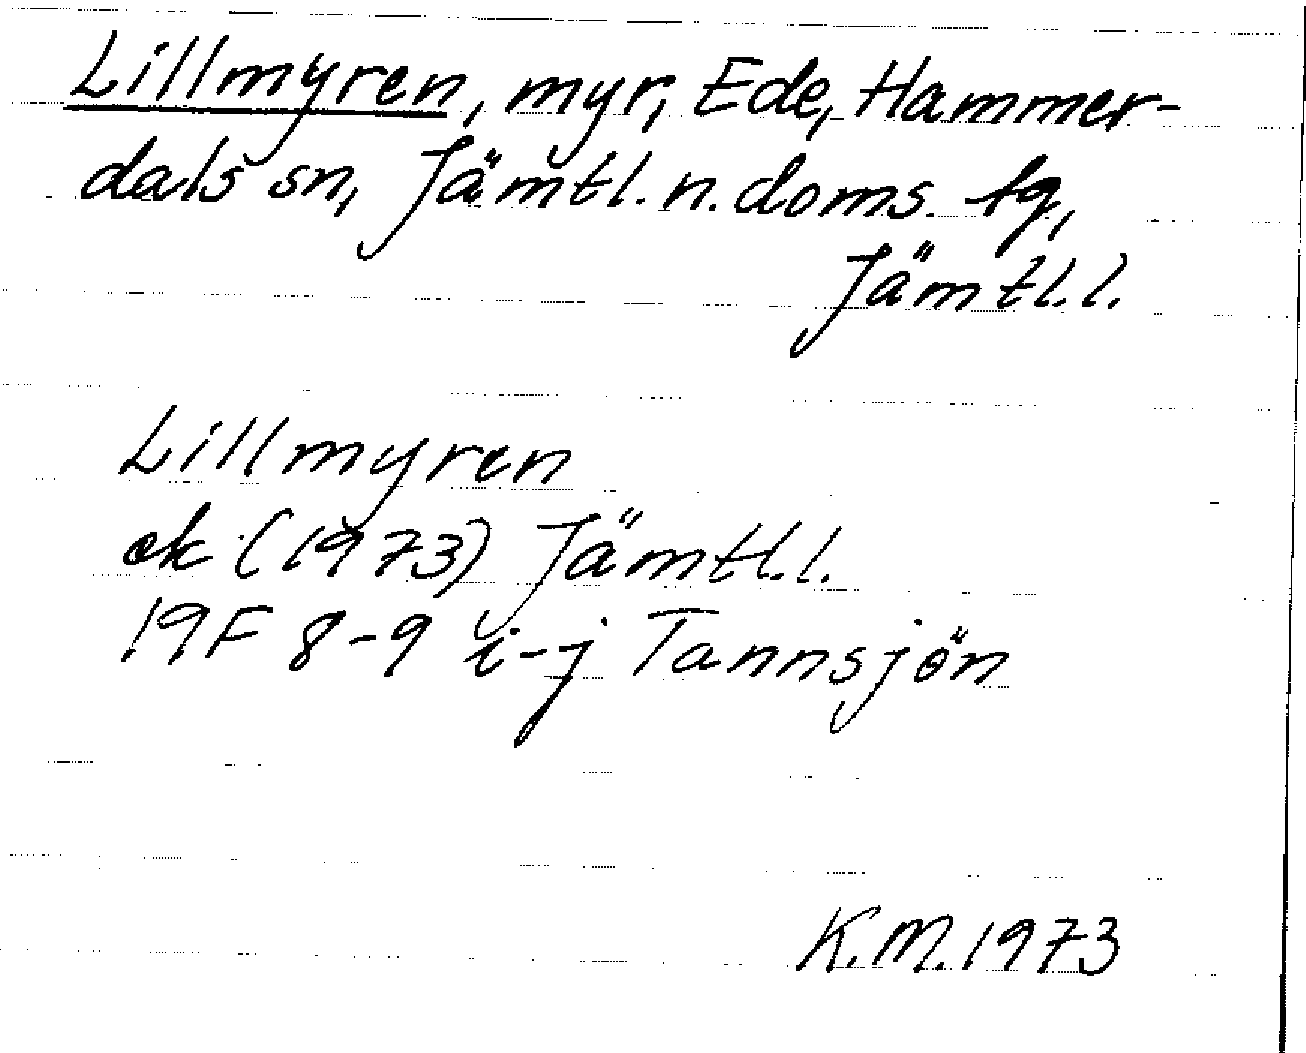 Lillmyren, myr, Ede, Hammer-
dals sn, Jämtl. n. doms. tg,
Jämtl. l.
Lillmyren
ek (1973) Jämtl. l.
19F 8-9 i-j Tannsjön
K.M. 1973